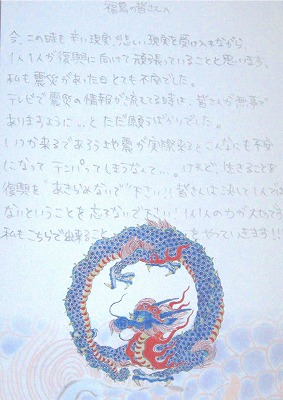 福島の皆さんへ
今、この時も辛い現実、悲しい現実を受け入れながら、
1人1人が復興に向けて頑張っていることと思います。
私も震災があった日とても不安でした。
テレビで震災の情報が流れてる時は、皆さんが無事で
ありますように…とただ願うばかりでした。
いつか来るであろう地震が実際来るとこんなにも不安
になってテンパってしまうなんて…。けれど、生きることを
復興を、あきらめないで下さい!! 皆さんは決して1人では
ないということを忘れないで下さい! 1人1人の力が大切です
私もこちらで出来ること をやっていきます!!